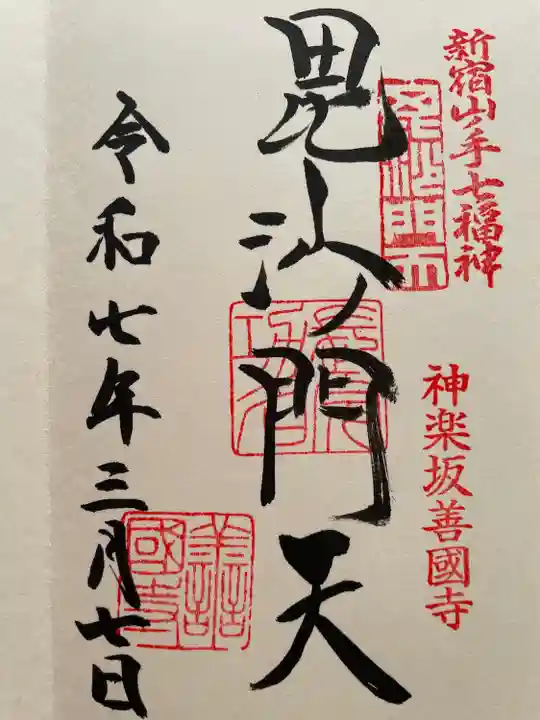 新宿山ノ手七福神
神楽坂善國寺
毘沙門天
令和七年三月七日